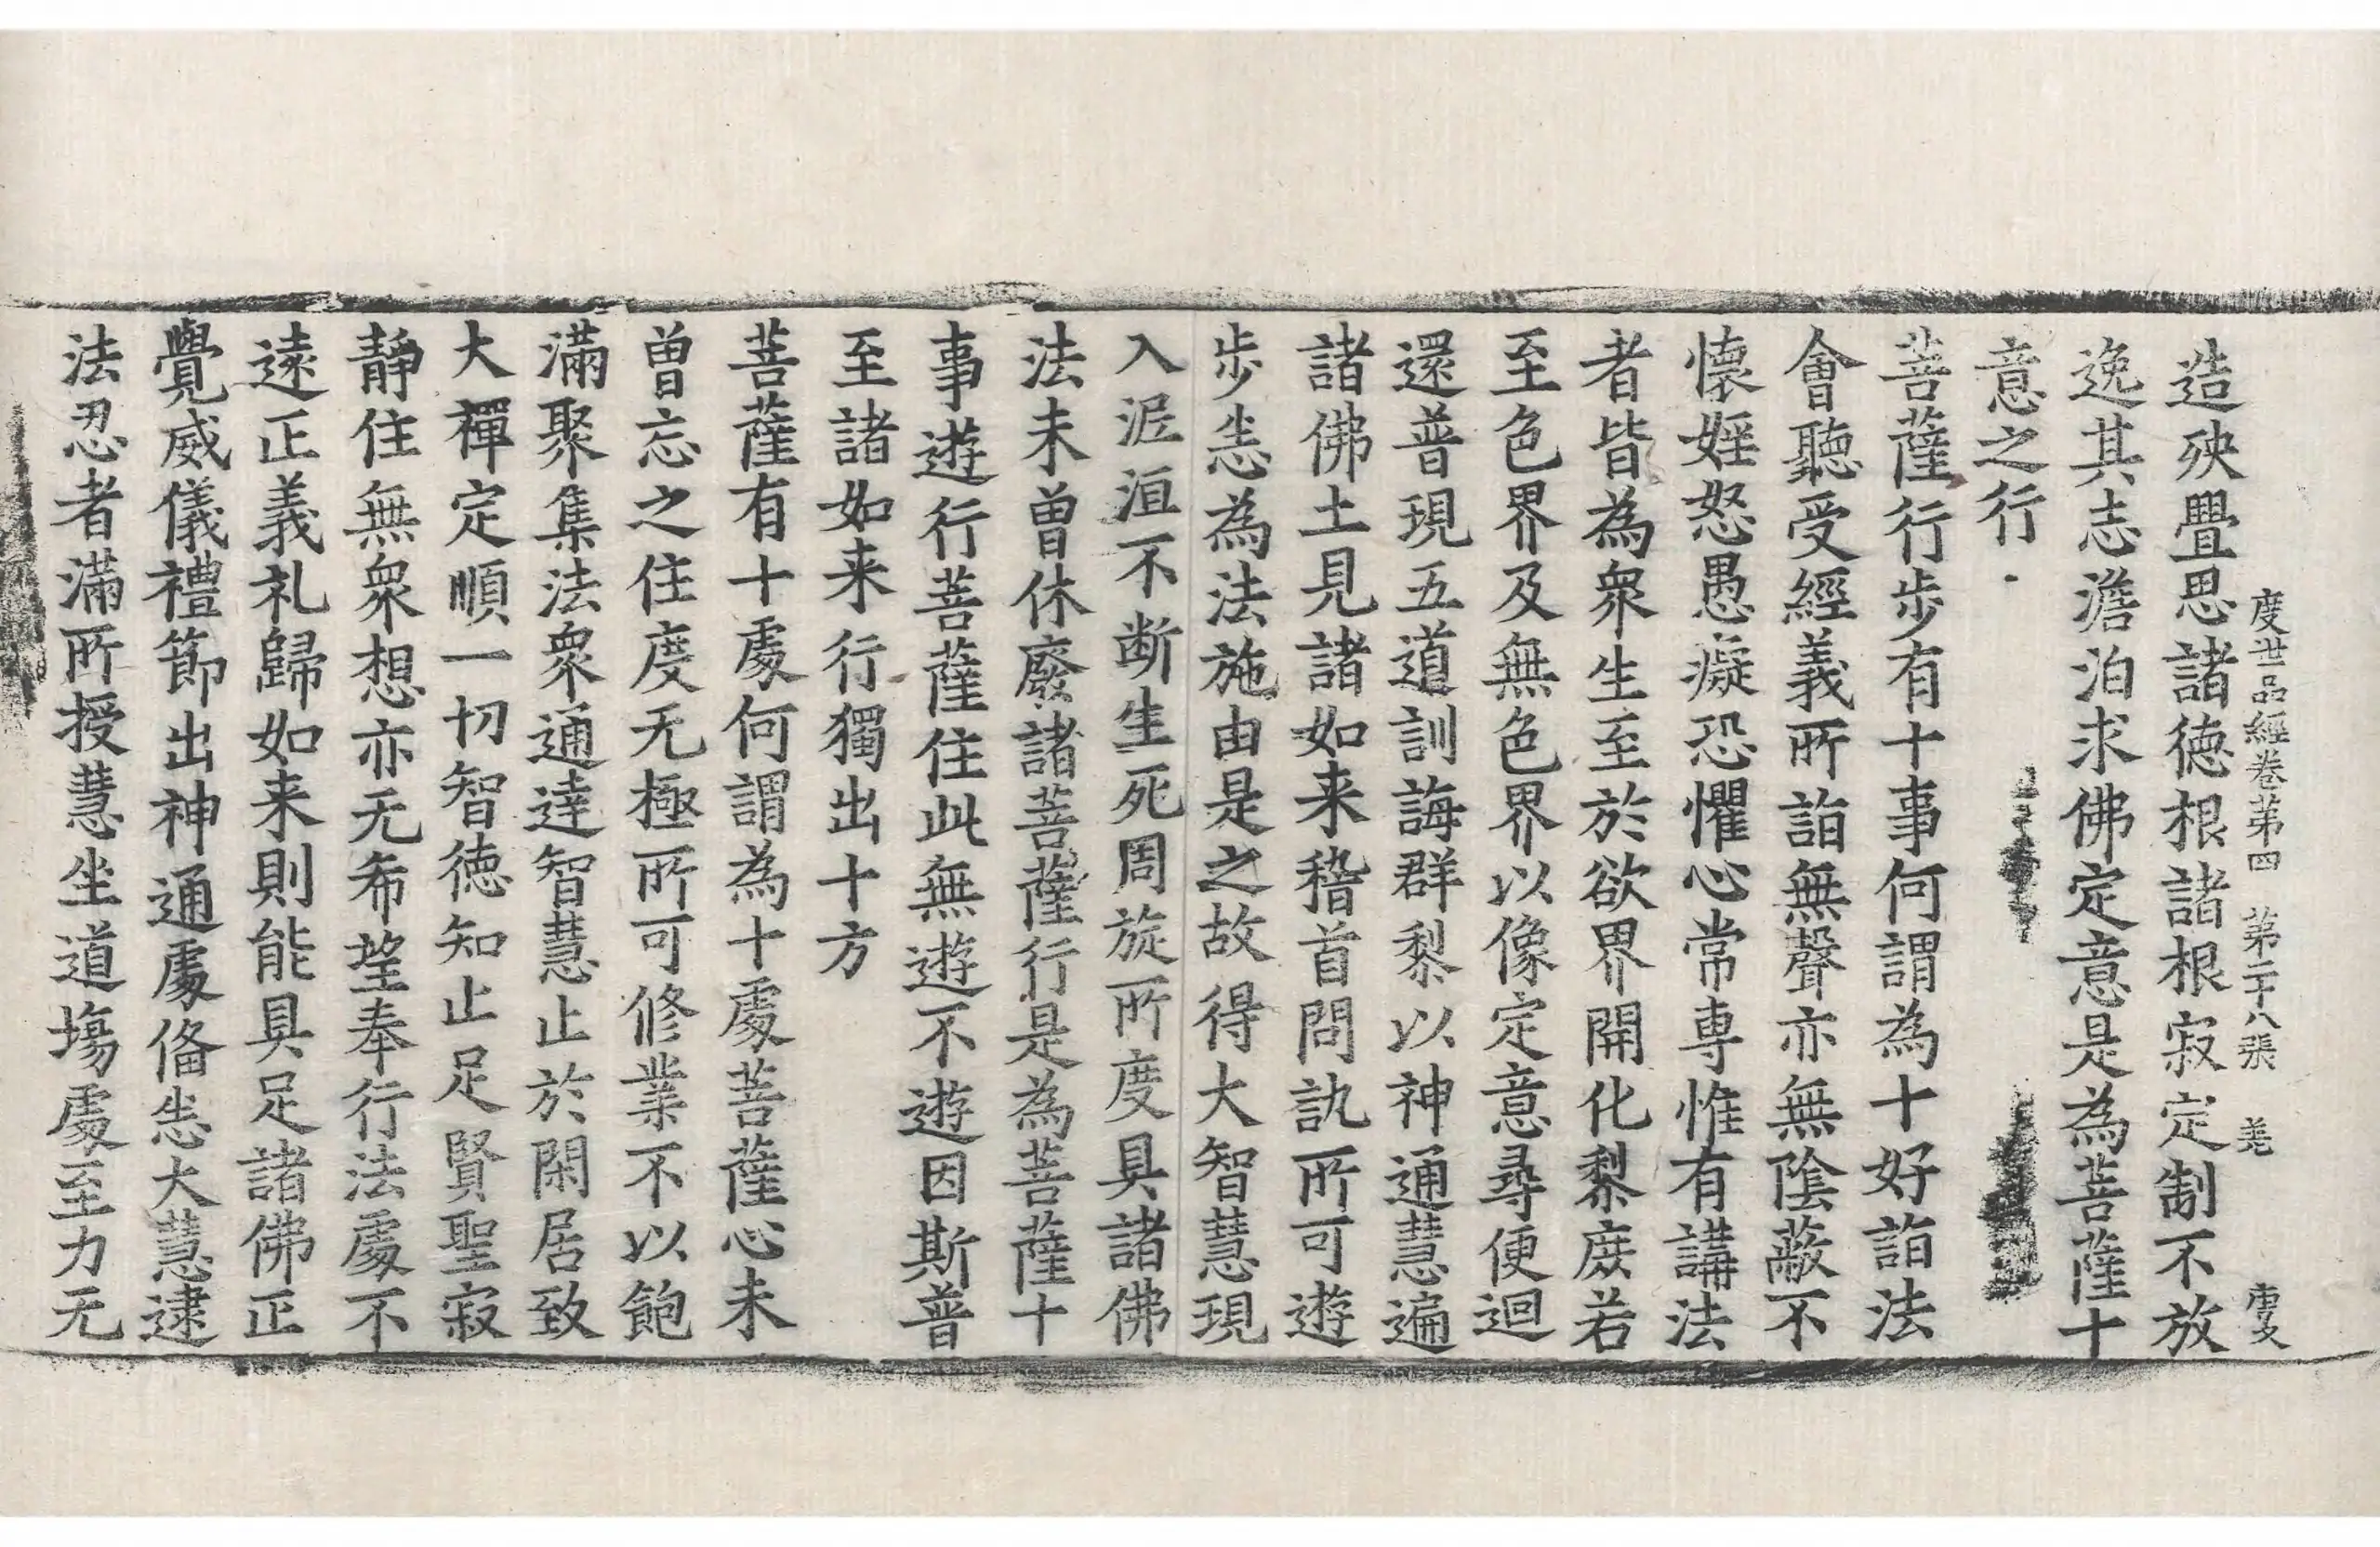 度世品經卷第四 第二十八張 羌 虔文
造殃舋思諸德根諸根寂定制不放
逸其志澹泊求佛定意是為菩薩十
意之行
菩薩行步有十事何謂為十好詣法
會聽受經義所詣無聲亦無陰蔽不
懷婬怒愚癡恐懼心常專惟有講法
者皆為衆生至於欲界開化黎庶若
至色界及無色界以像定意尋便迴
還普現五道訓誨群黎以神通慧遍
諸佛土見諸如来稽首問訊所可遊
步恙為法施由是之故得大智慧現
入泥洹不断生死周旋所度具諸佛
法未曽休廢諸菩薩行是為菩薩十
事遊行菩薩住此無遊不遊因斯普
至諸如来行獨出十方
菩薩有十處何謂為十處菩薩心未
曽忘之住度无極所可修業不以飽
滿聚集法衆通達智慧止於閑居致
大禪定順一切智德知止足賢聖寂
静住無衆想亦无希望奉行法處不
遠正義礼歸如来則能具足諸佛正
覺威儀禮節出神通處偹恙大慧逮
法忍者滿所授慧坐道塲處至力无